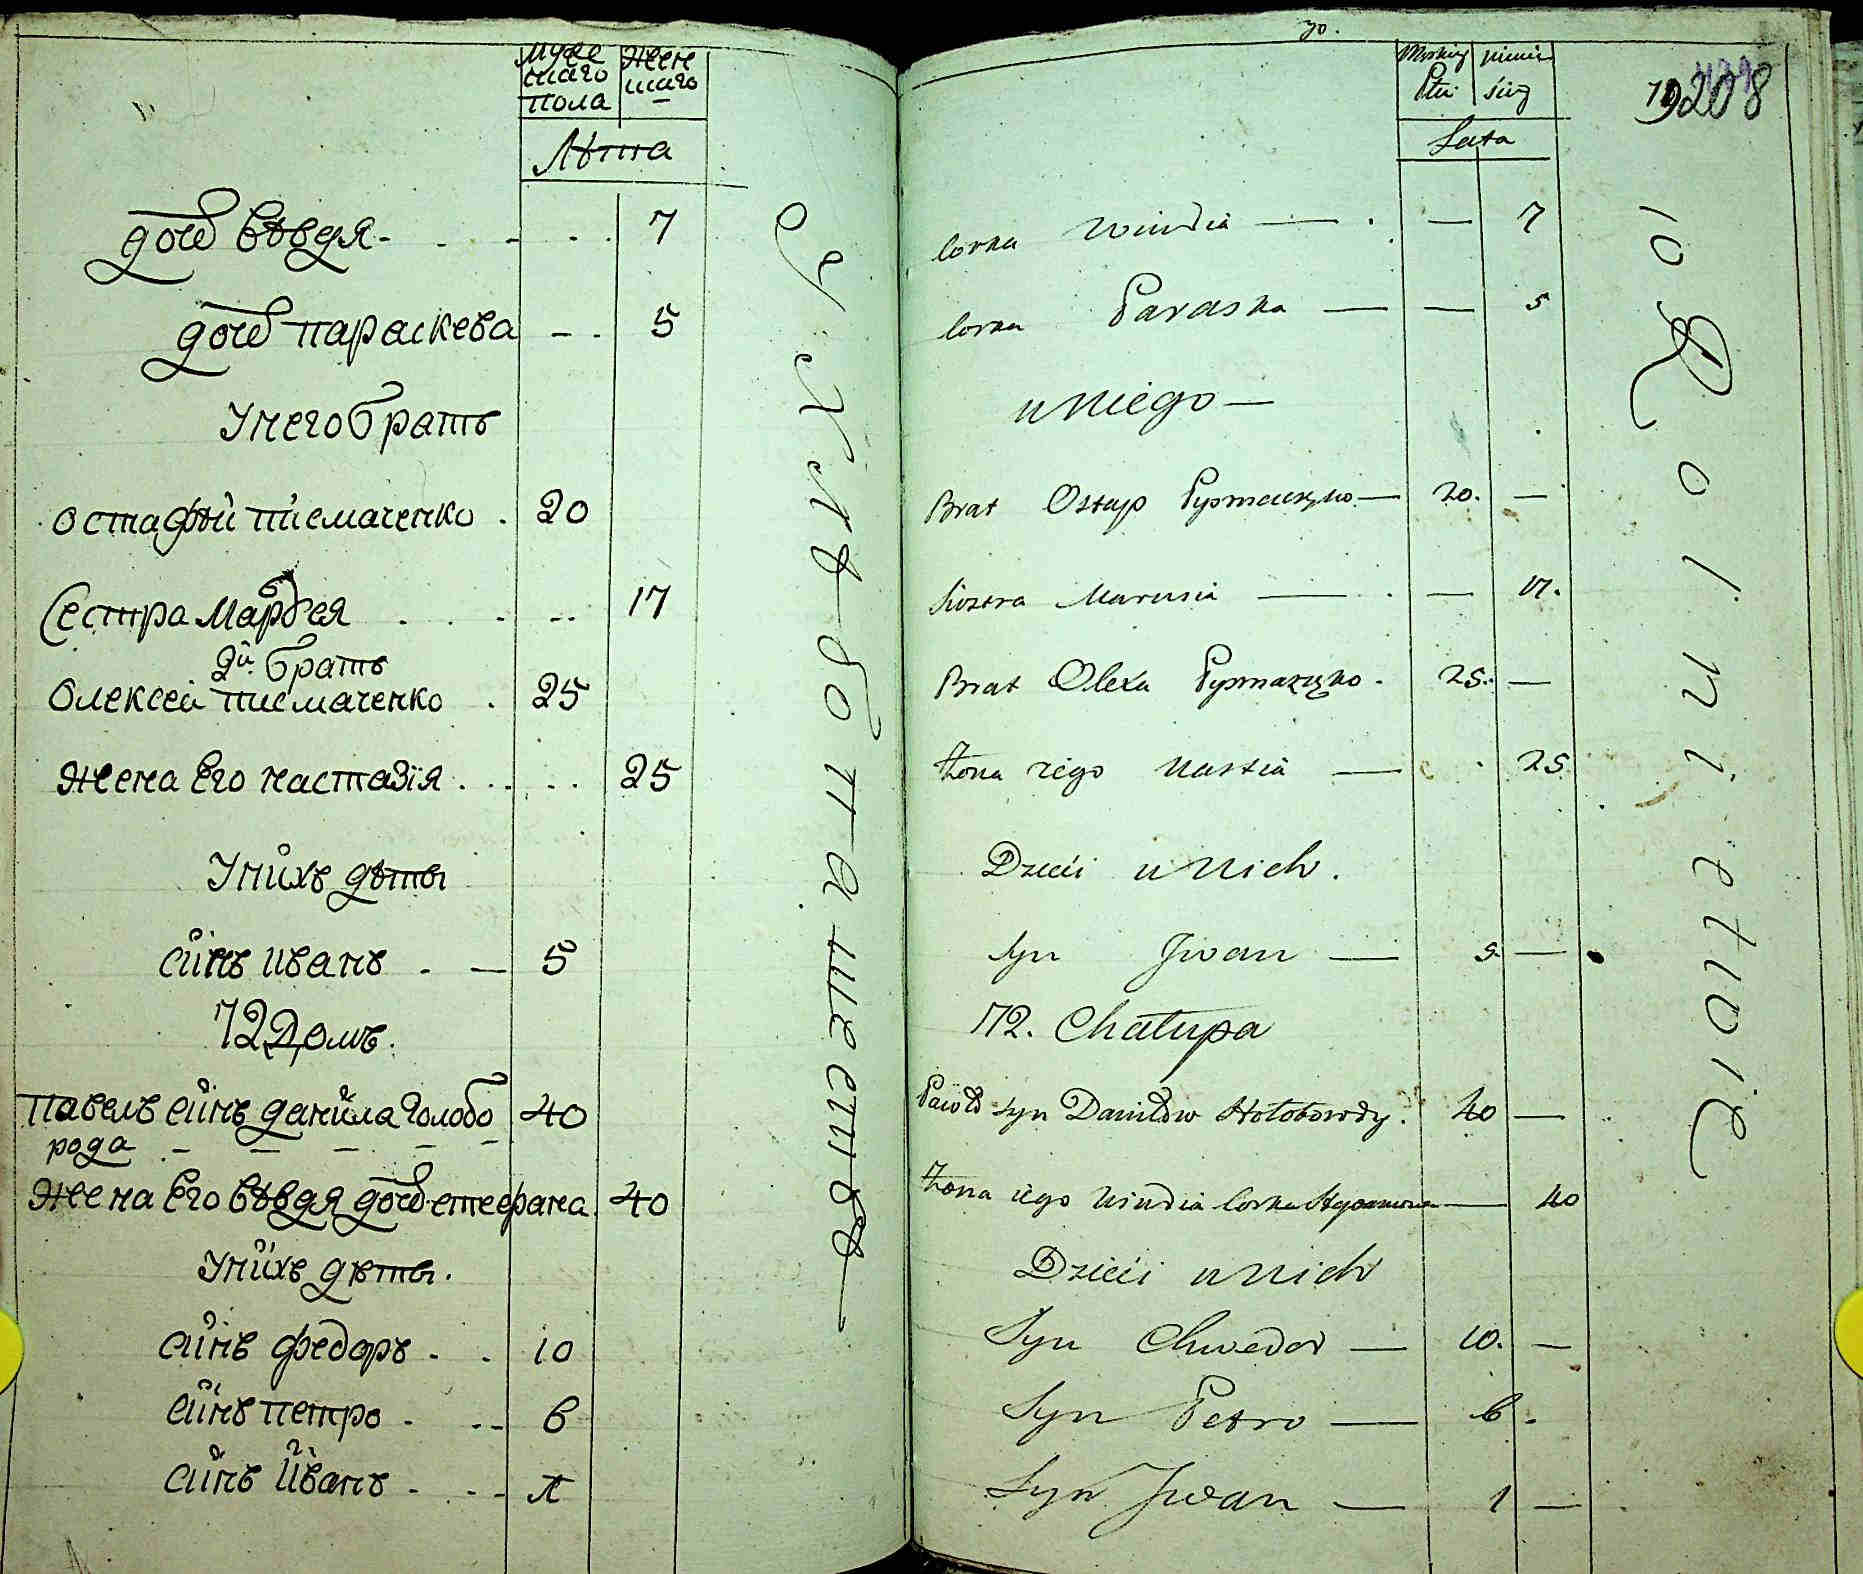 Муже
скаго
пола
Жен
скаго
Лѣта
дочь Вѣвдя 7
дочь Параскева 5
У него братъ
Остафѣй Писмаченко 20
Сестра Марѳея 17
2й братъ
Олексей Писмаченко 25
Жена его Настазїя 25
У нихъ дѣты
Синъ Иванъ 5
72 Домъ.
Павелъ синъ Данила Голобо 40
рода
Жена его Вѣвдя дочь Стефана 40
У нихъ дѣты.
Синъ Федоръ 10
Синъ Петро 6
Синъ Иванъ 1
70.
Męskiey
Płci
Lata
208
Corka Wiwdia — . — 7
Corka Paraska — — 5
u Niego —
Brat Ostap Pysmaczęko — 20. —
Siostra Marusia — . — 17.
Brat Olexa Pysmaczęko . 25. —
Żona iego Nastia — . 25
Dzieći u Nich.
Syn Jwan — 5 —
72. Chałupa
Pawło syn Daniłow Hołoborody. 40 —
Żona iego Wiwdia Corka Stepanowa — 40
Dzieći u Nich
Syn Chwedor — 10. —
Syn Petro — 6 .
Syn Jwan — 1 —
Rolnictwie